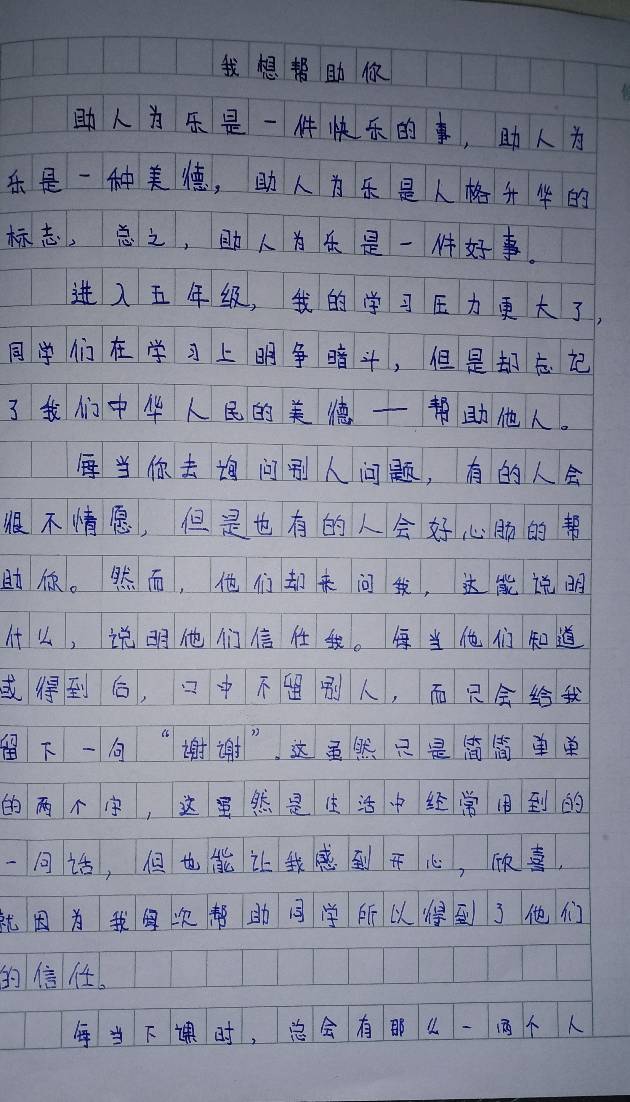 我想帮助你
助人为乐是一件快乐的事，助人为
乐是一种美德，助人为乐是人格升华的
标志，总之，助人为乐是一件好事。
进入五年级，我的学习压力更大了，
同学们在学习上明争暗斗，但是却忘记
了我们中华人民的美德——帮助他人。
每当你去询问别人问题，有的人会
很不情愿，但是也有的人会好心肠的帮
助你。然而，他们却来问我，这能说明
什么，说明他们信任我。每当他们知道
或得到后，口中不留别人，而只会给我
留下一句“谢谢”.这虽然只是简简单单
的两个字，这虽然是生活中经常用到的
一句话，但也能让我感到开心，欣喜，
就因为我每次帮助同学所以得到了他们
的信任。
每当下课时，总会有那么一两个人